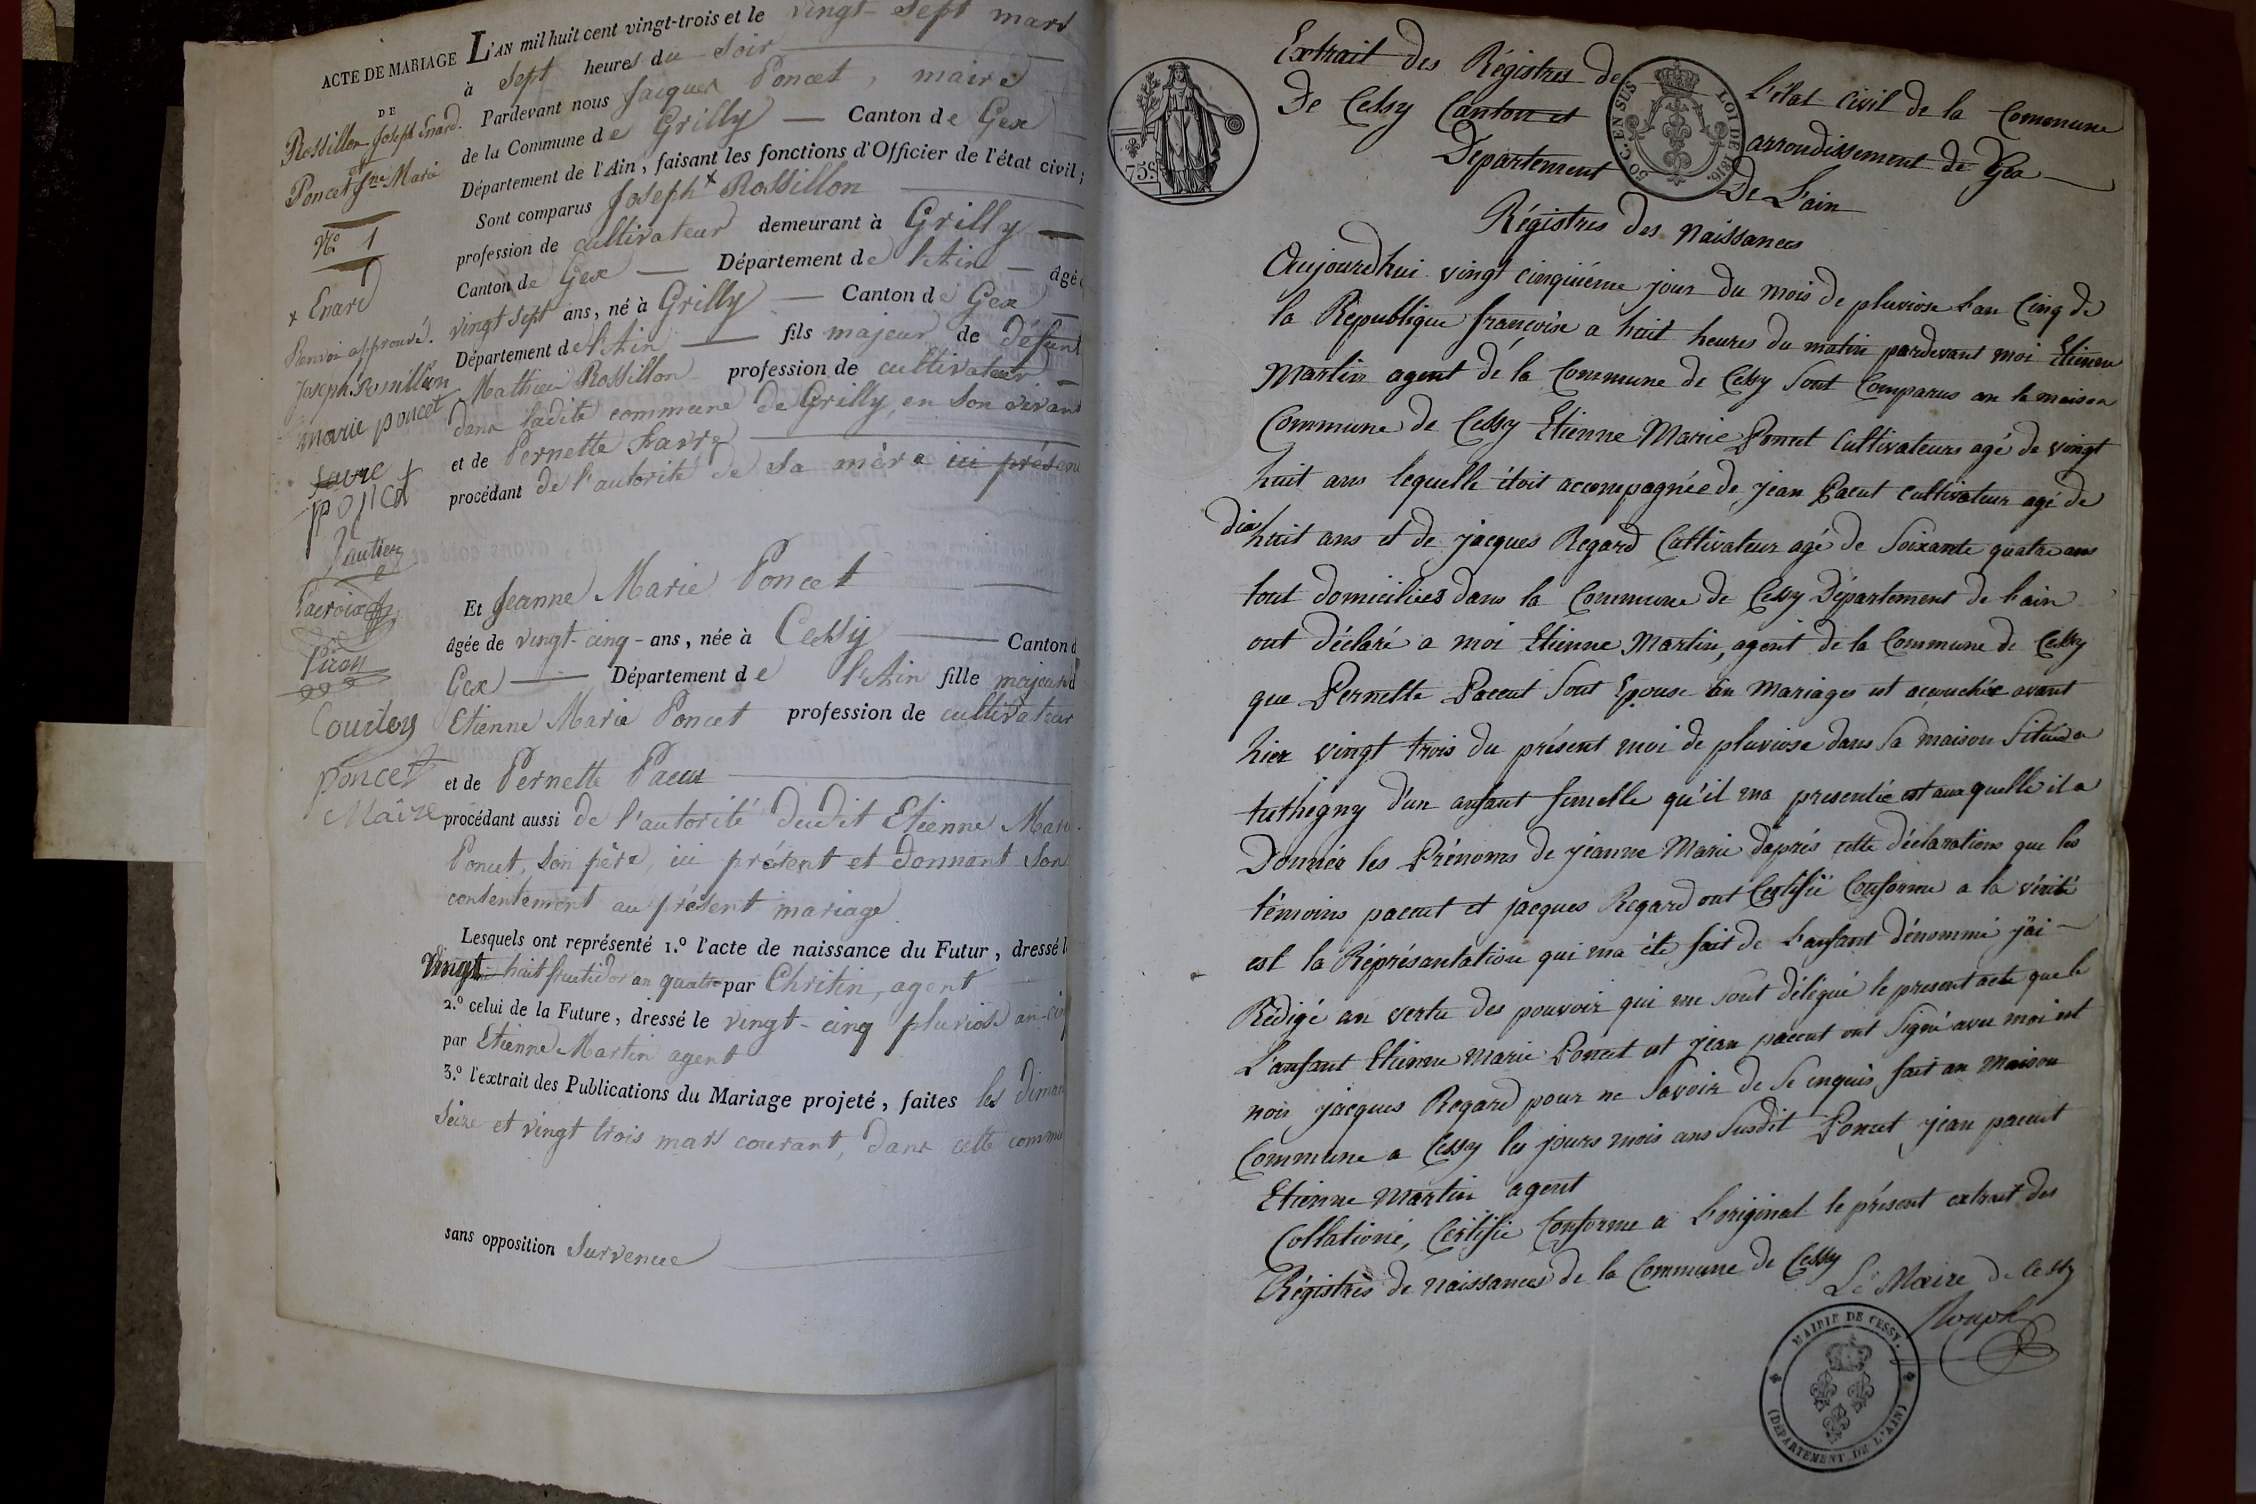 ACTE DE MARIAGE
DE
Rossillon Joseph Enard.
et
Poncet Jne Marie
N.º 1
x Enard
Renvoi approuvé.
Joseph Rossillion
marie poncet
favre
poncet
Gautier
Lacroix
Piron
Courtois
poncet
Maire
L'AN mil huit cent vingt-trois et le vingt-sept mars
à Sept heures du Soir
Pardevant nous Jacques Poncet, maire
de la Commune de Grilly Canton de Gex
Département de l'Ain, faisant les fonctions d'Officier de l'état civil;
Sont comparus Joseph x Rossillon
profession de cultivateur demeurant à Grilly
Canton de Gex Département de l'Ain âgé
vingt sept ans, né à Grilly Canton de Gex
Département de l'Ain fils majeur de défunt
Mathieu Rossillon profession de cultivateur
dans ladite commune de Grilly, en son vivant
et de Pernette
procédant de l'autorité de sa mère ici présen
Et Jeanne Marie Poncet
âgée de vingt-cinq-ans, née à Cessy Canton d
Gex Département de l'Ain fille majeure d
Etienne Marie Poncet profession de cultivateur
et de Pernette Pacut
procédant aussi de l'autorité dudit Etienne Marie
Poncet, son père, ici présent et donnant son
consentement au présent mariage
Lesquels ont représenté 1.º l'acte de naissance du Futur, dressé l
Vingt-huit fructidor an quatre par Chritin, agent
2.º celui de la Future, dressé le vingt-cinq pluviose an-cin
par Etienne Martin agent
3.º l'extrait des Publications du Mariage projeté, faites les diman
Seize et vingt trois mars courant, dans cette commu
sans opposition Survenue
75 C.
50 C. EN SUS LOI DE 1816.
Extrait des Régistres de L'état Civil de la Commune
De Cessy Canton et arrondissement de Gex
Departement De L'ain
Régistres des Naissances
Aujourdhui vingt cinquiéme jour du mois de pluviose L'an Cinq de
la République françoise a huit heures du matin pardevant moi Etienne
Martin agent de la Commune de Cessy Sont Comparus an la maison
Commune de Cessy Etienne Marie Poncet Cultivateurs agé de vingt
huit ans lequelle étoit accompagnée de jean Pacut cultivateur agé de
dix huit ans et de jacques Regard Cultivateur agé de Soixante quatre ans
tout domiciliés dans la Commune de Cessy Département de L'ain
out déclaré a moi Etienne Martin, agent de la Commune de Cessy
que Pernette Paccut Sout Epouse an Mariages est acouchée avant
hier vingt trois du présent moi de pluviose dans Sa maison Située a
tuthegny d'un anfant femelle qu'il ma presentée est auquelle il a
Donnér les Prénoms de jeanne Marie daprés cette déclarations que les
témoins paccut et jacques Regard out Certifié Conforme a la vérité
est la Réprésantation qui ma été fait de L'anfant dénommé j'ai
Rédigé an vertu des pouvoir qui me Sout délégué le present acte que le
L'anfant Etienne Marie Poncet est jean paccut out Signé avec moi est
non jacques Regard pour ne Savoir de Se enquis fait an Maison
Commune a Cessy les jours mois ans Susdit Poncet jean paccut
Etienne Martin agent
Collationé, Certifie Conforme a L'original le présent extrait des
Régistrès de Naissances de la Commune de Cessy
Le Maire de Cessy
Rouph
MAIRIE DE CESSY.
(DÉPARTEMENT DE L'AIN)